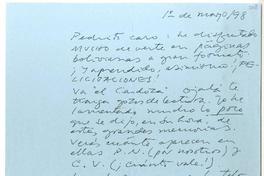 1º de mayo/98
Pedrito caro: he disfrutado
MUCHO de verte en páginas
bolivianas a gran formato
¡y aprendido, asimismo! ¡FE-
LICITACIONES!
Va "el Cardoza" ojalá te
traiga gotos de lectura. Te he
mucho lo poco
que se dijo, en su hora, de
estas grandes memorias.
Verás cuánto aparecen en
ellas P. N. (por nosotros) y
C. V. (¡cuánto vale!)